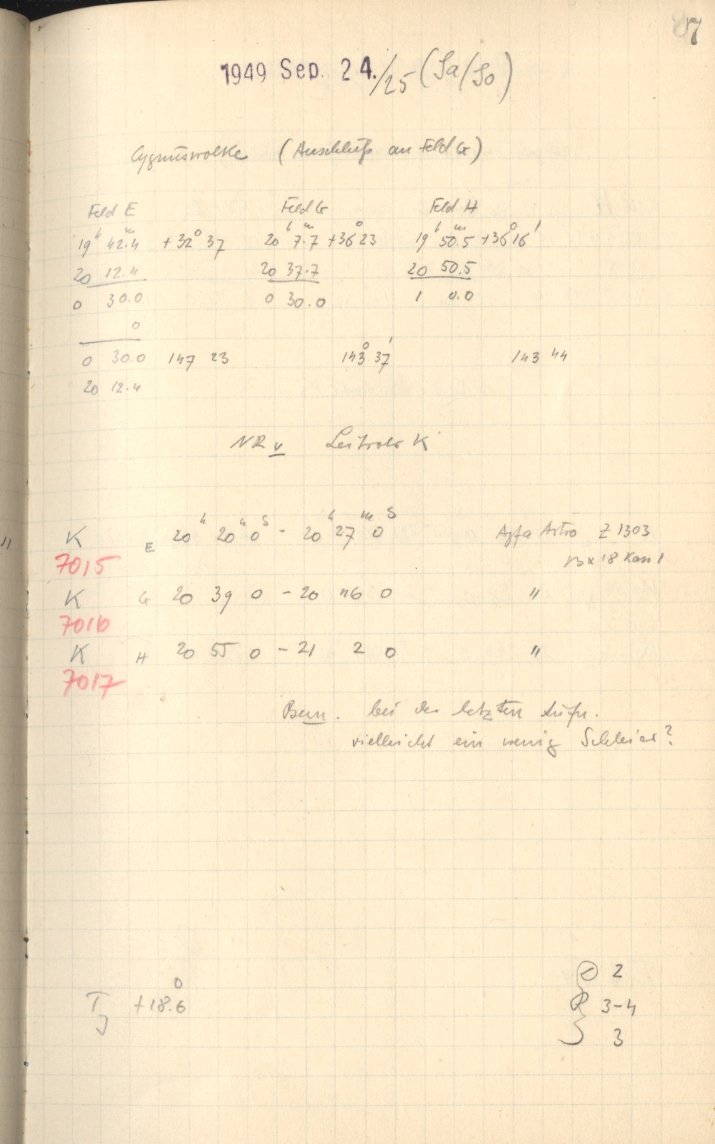 87
1949 Sep. 24./25 (Sa/So)
Cygnuswolke (Anschluß an Feld G)
Feld E Feld G Feld H
19h 42.4m +32° 37 20h 7.7m +36° 23 19h 50.5m +36° 16'
20 12.4 20 37.7 20 50.5
0 30.0 0 30.0 1 0.0
0
0 30.0 147 23 143° 37' 143 44
20 12.4
Leitrohr K
K E 20h 20m 0s - 20h 27m 0s Agfa Astro Z 1303
7015 13 x 18 Kass 1
K G 20 39 0 - 20 46 0 "
7016
K H 20 55 0 - 21 2 0 "
7017
Bem. bei der letzten Aufn.
vielleicht ein wenig Schleier?
2
T +18.6° 3-4
3